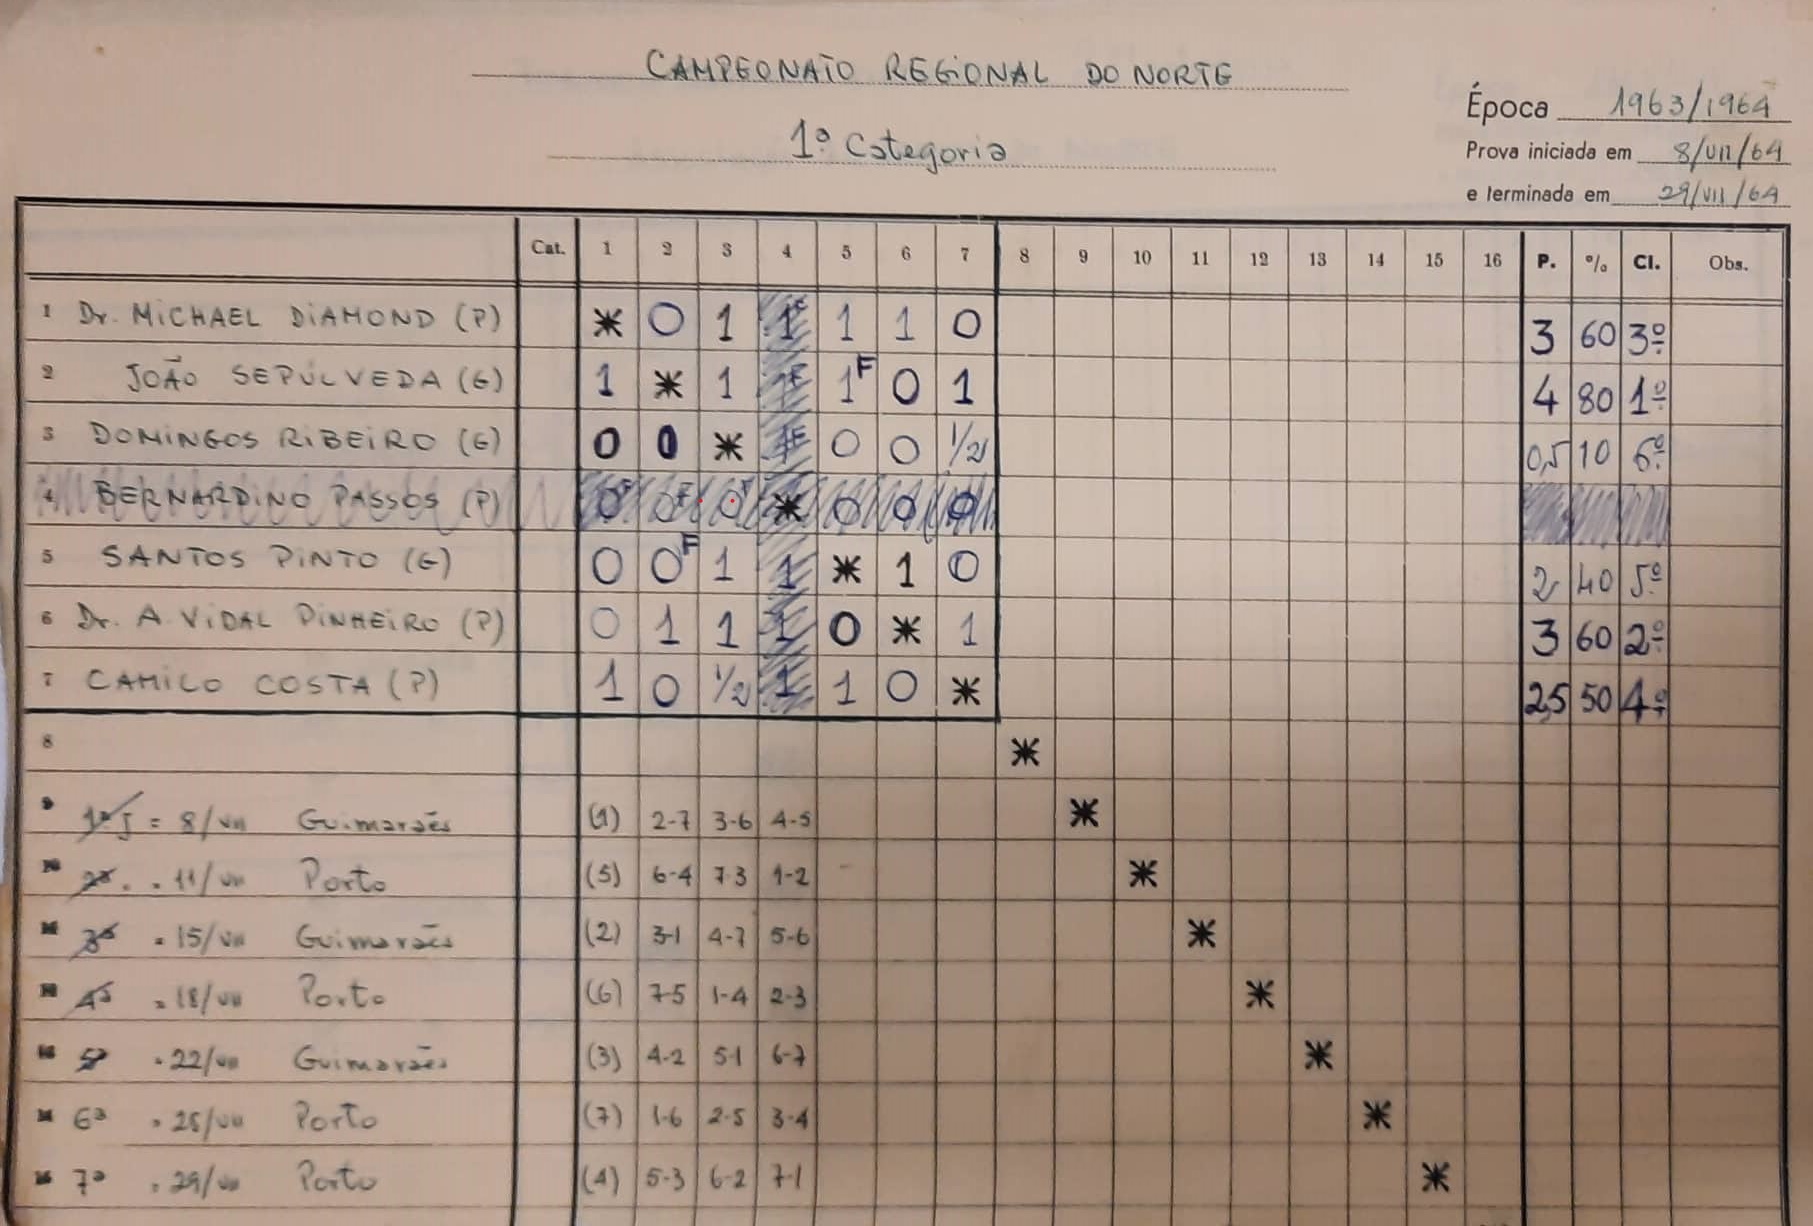 CAMPEONATO REGIONAL DO NORTE
1ª Categoria
Época 1963/1964
Prova iniciada em 8/VII/64
e terminada em 29/VII/64
Cat. 1 2 3 4 5 6 7 8 9 10 11 12 13 14 15 16 P. % Cl. Obs.
1 Dr. MICHAEL DIAMOND (P) * 0 1 1F 1 1 0 3 60 3º
2 JOÃO SEPÚLVEDA (G) 1 * 1 1F 1F 0 1 4 80 1º
3 DOMINGOS RIBEIRO (G) 0 0 * 1F 0 0 1/2 0,5 10 6º
4 BERNARDINO PASSOS (P) 0F 0F 0F * 0 0 0
5 SANTOS PINTO (G) 0 0F 1 1 * 1 0 2 40 5º
6 Dr. A. VIDAL PINHEIRO (P) 0 1 1 1 0 * 1 3 60 2º
7 CAMILO COSTA (P) 1 0 1/2 1 1 0 * 2,5 50 4º
8 *
9 1ª J = 8/VII Guimarães (1) 2-7 3-6 4-5 *
2ª " " 11/VII Porto (5) 6-4 7-3 1-2 *
3ª " 15/VII Guimarães (2) 3-1 4-7 5-6 *
4ª " 18/VII Porto (6) 7-5 1-4 2-3 *
5ª " 22/VII Guimarães (3) 4-2 5-1 6-7 *
6ª " 25/VII Porto (7) 1-6 2-5 3-4 *
7ª " 29/VII Porto (4) 5-3 6-2 7-1 *